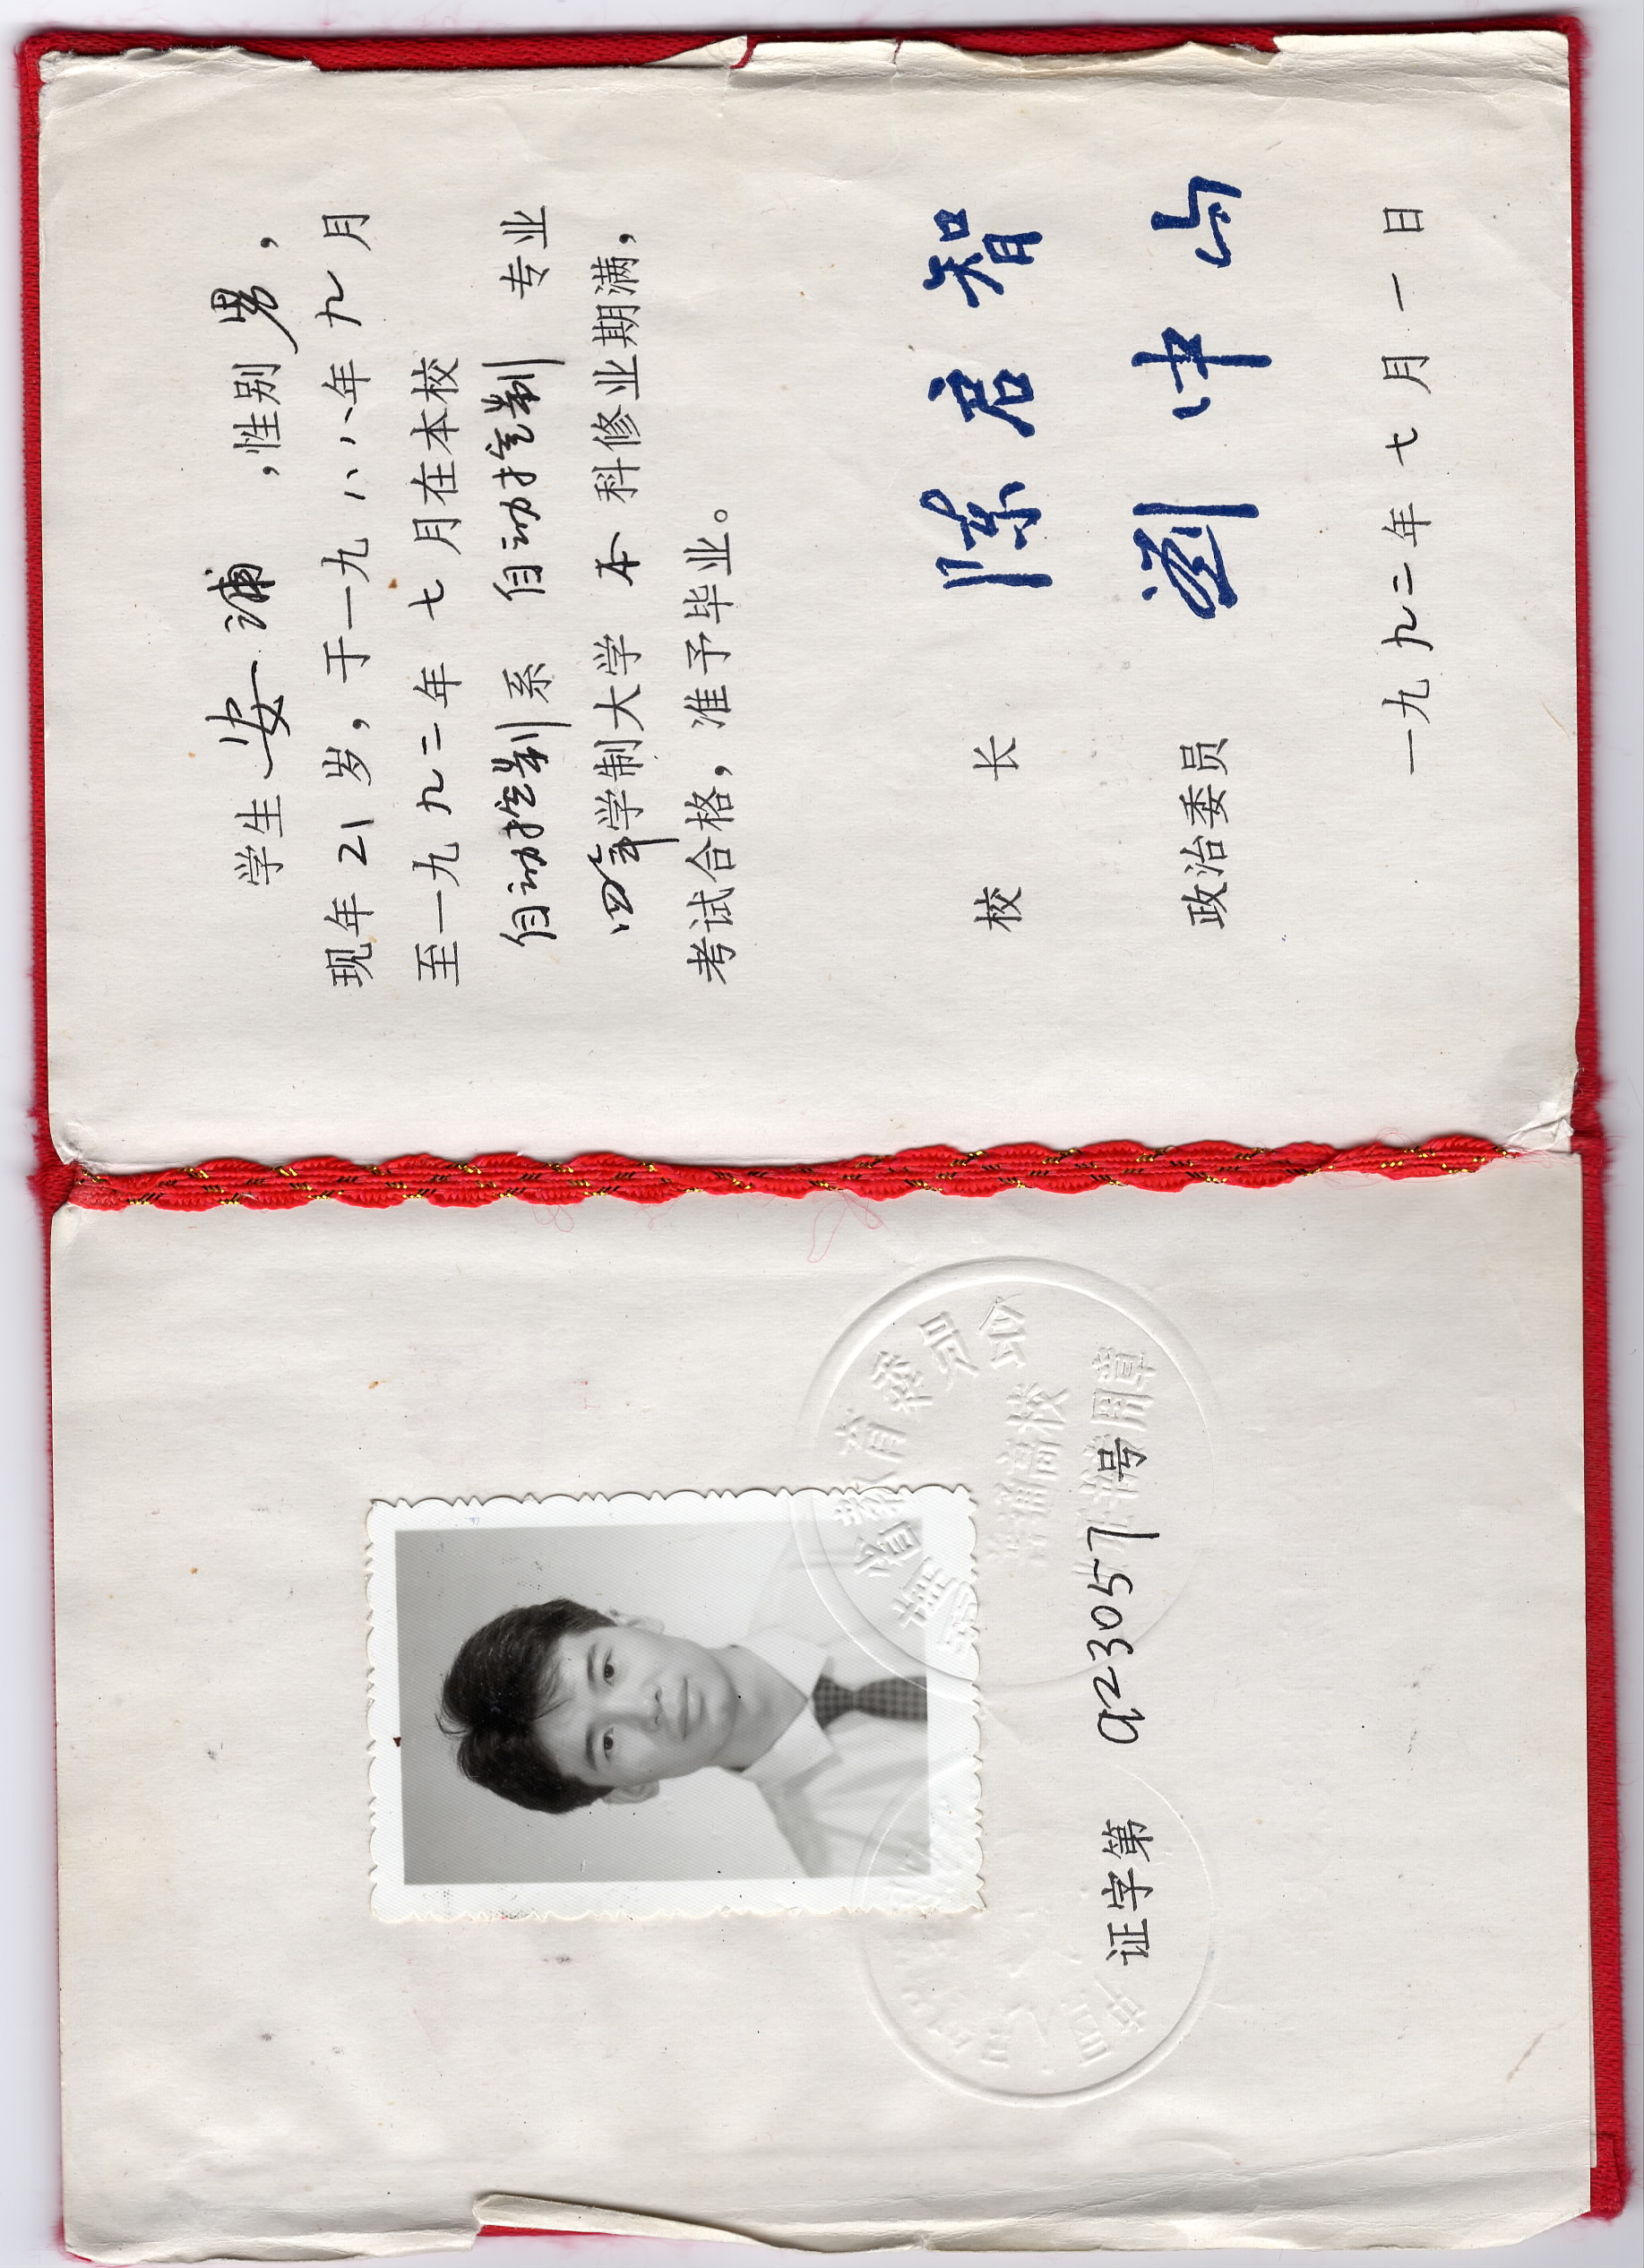 陕西省教育委员会
普通高校
证书专用章
证字第 923057 号
学生 安浦 ,性别 男,
现年 21 岁,于一九八八年九月
至一九九二年七月在本校
自动控制系 自动控制 专业
四年学制大学 本 科修业期满,
考试合格,准予毕业。
校 长 陈君智
政治委员 刘仲山
一九九二年七月一日